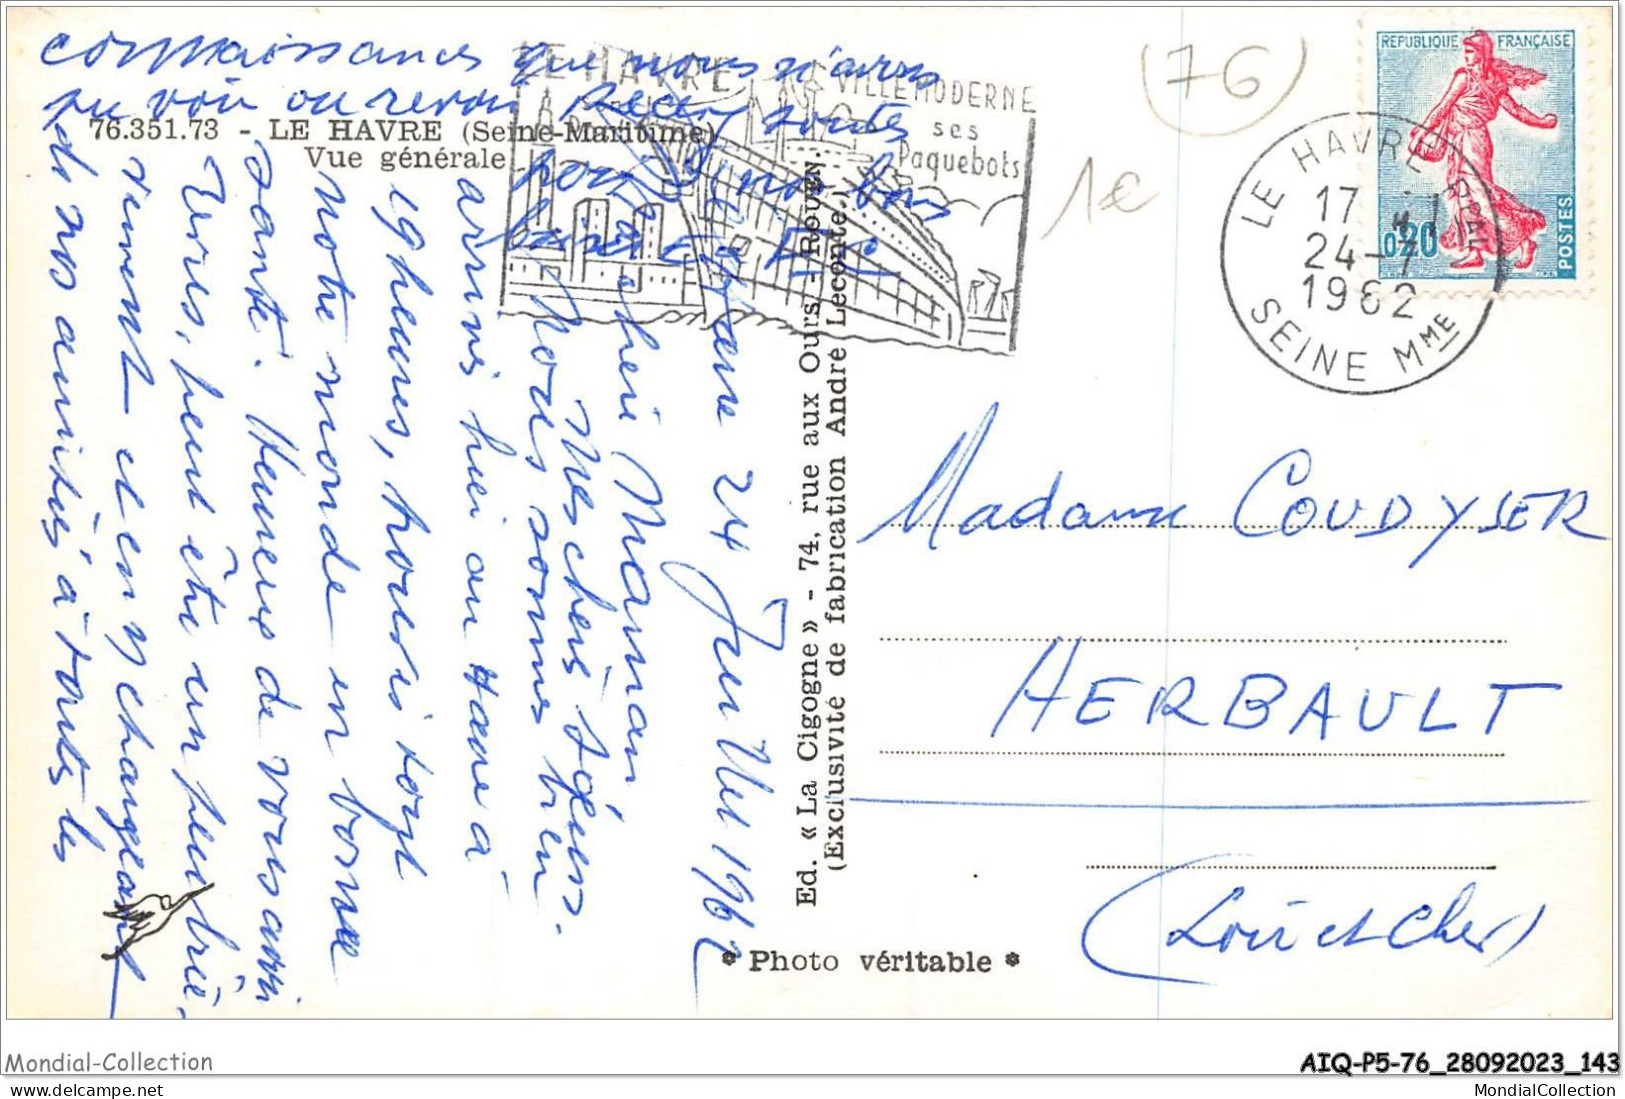 connaissances que nous n'avons
pu voir ou revoir. Recevez toutes
pour nos bons
baisers
76.351.73 - LE HAVRE (Seine-Maritime)
Vue générale
LE HAVRE
Port
VILLE MODERNE
ses
Paquebots
(76)
1€
REPUBLIQUE FRANÇAISE
0,20
POSTES
LE HAVRE PPAL
17 H
24-7
1962
SEINE MME
Le Havre 24 Juillet 1962
Ma chère Maman
Mes chères Sœurs.
Nous sommes bien
arrivés hier au Havre à
19 heures, nous voyons
notre monde en bonne
santé. Heureux de vous avoir
vues, peut être un peu briè-
vement et en y changeant
de nos amitiés à toutes les
Ed. « La Cigogne » - 74, rue aux Ours, - Rouen.
(Exclusivité de fabrication André Leconte.)
Madame COUDYSER
HERBAULT
(Loir et Cher)
* Photo véritable *
Mondial-Collection
AIQ-P5-76_28092023_143
MondialCollection